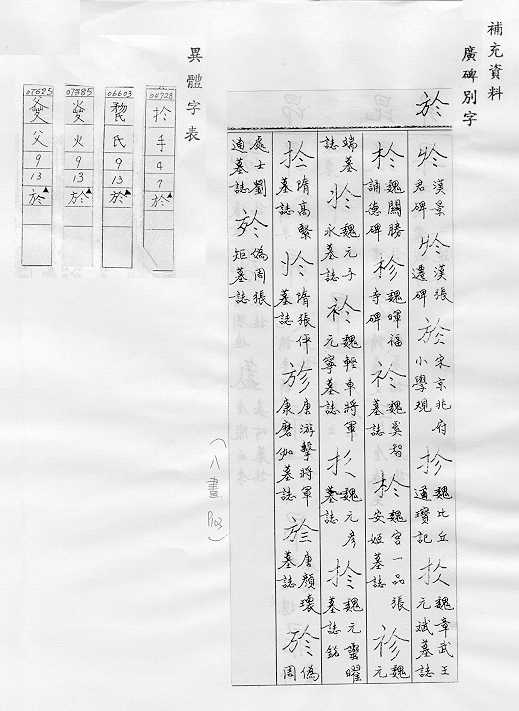 補充資料
廣碑別字
於
漢景君碑
漢張遷碑
於 宋京兆府小學規
魏比丘道瓊記
魏章武王元斌墓誌
魏闕勝誦德碑
魏暉福寺碑
魏奚智墓誌
魏宮一品張安姬墓誌
魏元
端墓誌
魏元子永墓誌
魏輕車將軍元寧墓誌
魏元彥墓誌
魏元蠻曜墓誌銘
隋高緊墓誌
隋張伻墓誌
唐游擊將軍康磨伽墓誌
唐顏瓌墓誌
偽周
處士劉通墓誌
於 偽周張矩墓誌
(八畫)
異體字表
04728
扵
手
4
7
於
06603
氏
9
13
於
07385
火
9
13
於
07625
父
9
13
於